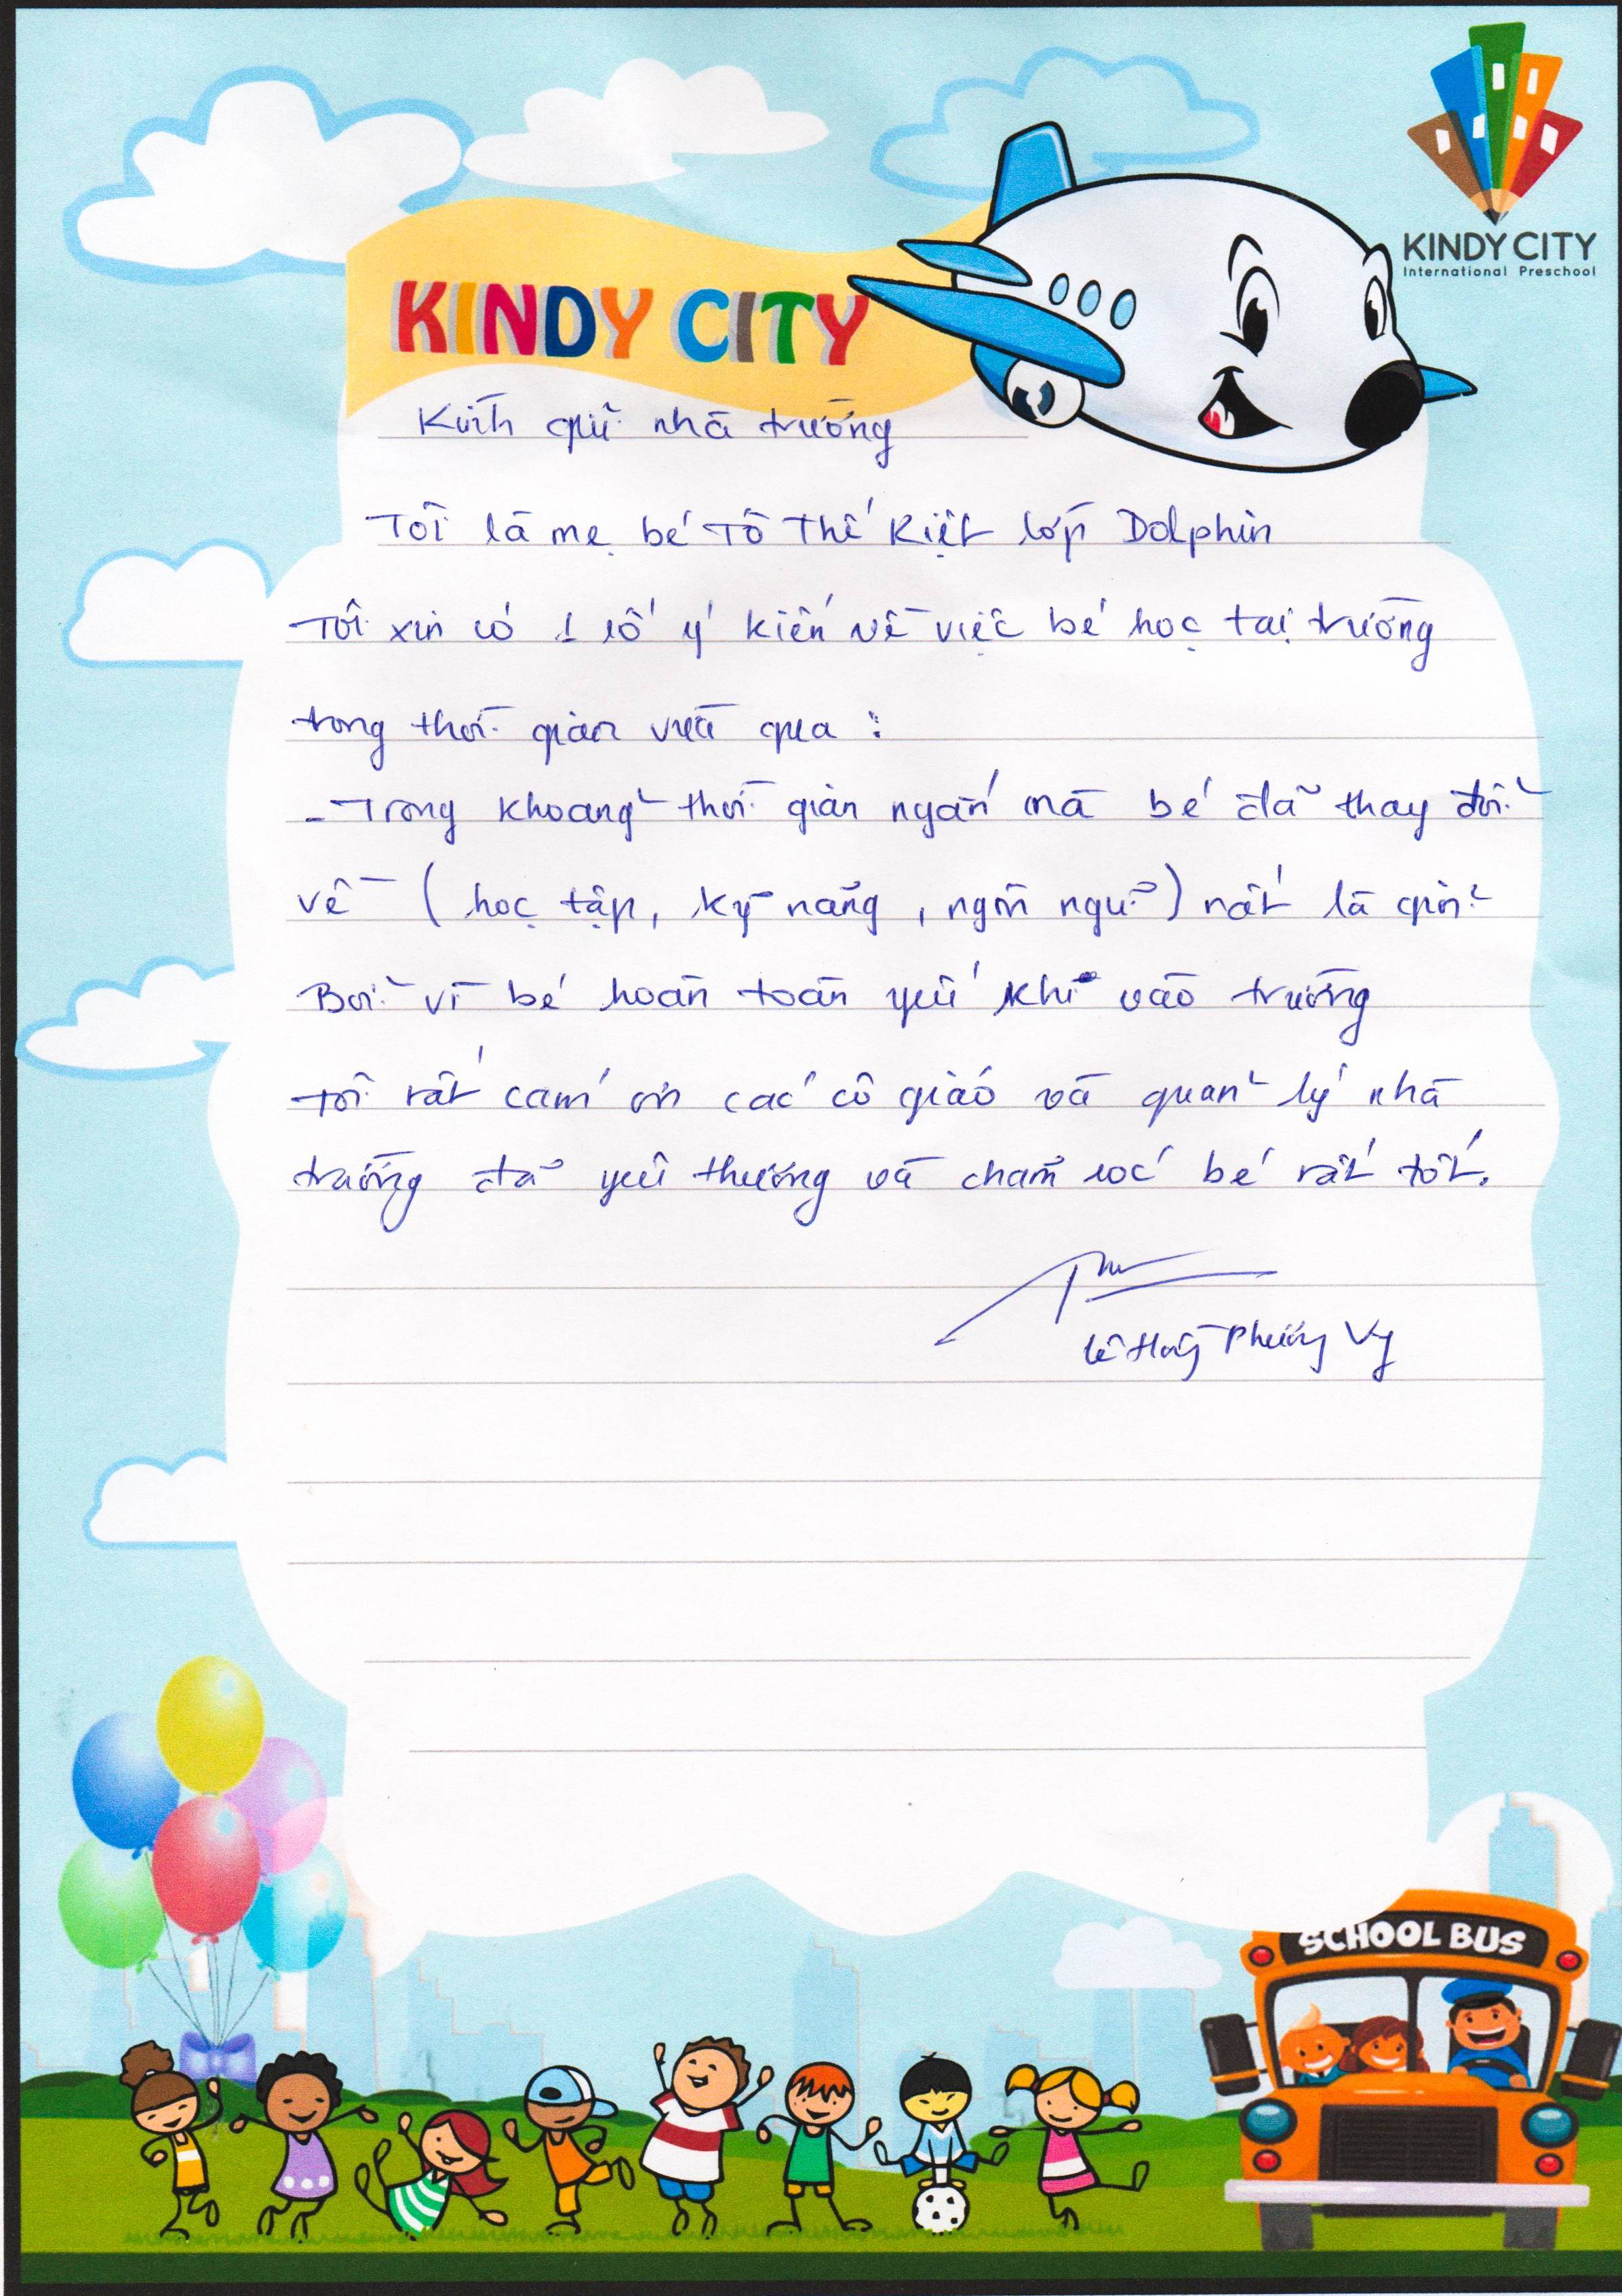 KINDY CITY
International Preschool
KINDY CITY
Kính gửi nhà trường
Tôi là mẹ bé Tô Thế Kiệt lớp Dolphin
Tôi xin có 1 số ý kiến về việc bé học tại trường
trong thời gian vừa qua :
- Trong khoảng thời gian ngắn mà bé đã thay đổi
về ( học tập, kỹ năng , ngôn ngữ ) rất là giỏi
Bởi vì bé hoàn toàn yếu khi vào trường
Tôi rất cám ơn các cô giáo và quản lý nhà
trường đã yêu thương và chăm sóc bé rất tốt.
Lê Hoàng Phương Vy
SCHOOL BUS